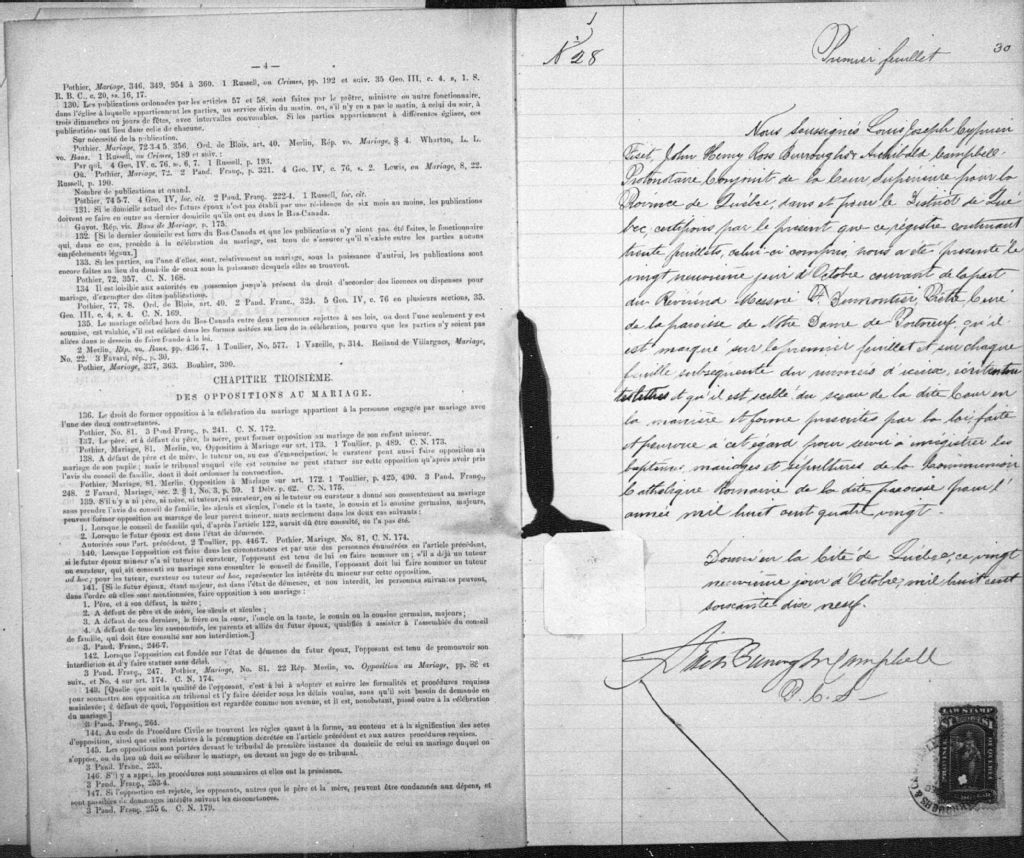 — 4 —
Pothier, Mariage, 346, 349, 954 à 360. 1 Russell, on Crimes, pp. 192 et suiv. 35 Geo. III, c. 4, s, 1. S.
R. B. C., c. 20, ss. 16, 17.
130. Les publications ordonnées par les articles 57 et 58, sont faites par le prêtre, ministre ou autre fonctionnaire,
dans l'église à laquelle appartiennent les parties, au service divin du matin, ou, s'il n'y en a pas le matin, à celui du soir, à
trois dimanches ou jours de fêtes, avec intervalles convenables. Si les parties appartiennent à différentes églises, ces
publications ont lieu dans celle de chacune.
Sur nécessité de la publication.
Pothier, Mariage, 72-3-4 5, 356. Ord. de Blois, art. 40. Merlin, Rép. vo. Mariage, § 4. Wharton, L. L.
vo. Bans. 1 Russell, on Crimes, 189 et suiv. :
Par qui. 4 Geo. IV, c. 76, s. 6, 7. 1 Russell, p. 193.
Où. Pothier, Mariage, 72. 2 Pand. Franç., p. 321. 4 Geo. IV, c. 76, s. 2. Lewis, on Mariage, 8, 22.
Russell, p. 190.
Nombre de publications et quand.
Pothier, 74 5-7. 4 Geo. IV, loc. cit. 2 Pand. Franç. 222-4. 1 Russell, loc. cit.
131. Si le domicile actuel des futurs époux n'est pas établi par une résidence de six mois au moins, les publications
doivent se faire en outre au dernier domicile qu'ils ont eu dans le Bas-Canada.
Guyot. Rép. vis. Bans de Mariage, p. 175.
132. [Si le dernier domicile est hors du Bas-Canada et que les publications n'y aient pas été faites, le fonctionnaire
qui, dans ce cas, procède à la célébration du mariage, est tenu de s'assurer qu'il n'existe entre les parties aucuns
empêchements légaux.]
133. Si les parties, ou l'une d'elles, sont, relativement au mariage, sous la puissance d'autrui, les publications sont
encore faites au lieu du domicile de ceux sous la puissance desquels elles se trouvent.
Pothier, 72, 357. C. N. 168.
134 Il est loisible aux autorités en possession jusqu'à présent du droit d'accorder des licences ou dispenses pour
mariage, d'exempter des dites publications.
Pothier, 77, 78. Ord. de Blois, art. 40. 2 Pand. Franc., 324. 5 Geo. IV, c. 76 en plusieurs sections, 35.
Geo. III, c. 4, s. 4. C. N. 169.
135. Le mariage célébré hors du Bas-Canada entre deux personnes sujettes à ses lois, ou dont l'une seulement y est
soumise, est valable, s'il est célébré dans les formes usitées au lieu de la célébration, pourvu que les parties n'y soient pas
allées dans le dessein de faire fraude à la loi.
2 Merlin, Rép. vo. Bans. pp. 436-7. 1 Toullier, No. 577. 1 Vazeille, p. 314. Rolland de Villargues, Mariage,
No. 22. 3 Favard, rép., p. 30.
Pothier, Mariage, 327, 363. Bouhier, 390.
CHAPITRE TROISIÈME.
DES OPPOSITIONS AU MARIAGE.
136. Le droit de former opposition à la célébration du mariage appartient à la personne engagée par mariage avec
l'une des deux contractantes.
Pothier, No. 81. 3 Pand Franç., p. 241. C. N. 172.
137. Le père, et à défaut du père, la mère, peut former opposition au mariage de son enfant mineur.
Pothier, Mariage, 81. Merlin, vo. Opposition à Mariage sur art. 173. 1 Toullier, p. 489. C. N. 173.
138. A défaut de père et de mère, le tuteur ou, en cas d'émancipation, le curateur peut aussi faire opposition au
mariage de son pupille ; mais le tribunal auquel elle est soumise ne peut statuer sur cette opposition qu'après avoir pris
l'avis du conseil de famille, dont il doit ordonner la convocation.
Pothier, Mariage, 81. Merlin, Opposition à Mariage sur art. 172. 1 Toullier, p. 425, 490. 3 Pand. Franç.,
248. 2 Favard, Mariage, sec. 2. § 1, No. 3, p. 59. 1 Delv. p. 62. C. N. 175.
139. S'il n'y a ni père, ni mère, ni tuteur, ni curateur, ou si le tuteur ou curateur a donné son consentement au mariage
sans prendre l'avis du conseil de famille, les aïeuls et aïeules, l'oncle et la tante, le cousin et la cousine germains, majeurs,
peuvent former opposition au mariage de leur parent mineur, mais seulement dans les deux cas suivants :
1. Lorsque le conseil de famille qui, d'après l'article 122, aurait dû être consulté, ne l'a pas été.
2. Lorsque le futur époux est dans l'état de démence.
Autorités sous l'art. précédent. 2 Toullier, pp. 446-7. Pothier, Mariage, No. 81, C. N. 174.
140. Lorsque l'opposition est faite dans les circonstances et par une des personnes énumérées en l'article précédent,
si le futur époux mineur n'a ni tuteur ni curateur, l'opposant est tenu de lui en faire nommer un ; s'il a déjà un tuteur
ou curateur, qui ait consenti au mariage sans consulter le conseil de famille, l'opposant doit lui faire nommer un tuteur
ad hoc ; pour les tuteur, curateur ou tuteur ad hoc, représenter les intérêts du mineur sur cette opposition.
141. [Si le futur époux, étant majeur, est dans l'état de démence, et non interdit, les personnes suivantes peuvent,
dans l'ordre où elles sont mentionnées, faire opposition à son mariage :
1. Père, et à son défaut, la mère ;
2. A défaut de père et de mère, les aïeuls et aïeules ;
3. A défaut de ces derniers, le frère ou la sœur, l'oncle ou la tante, le cousin ou la cousine germains, majeurs ;
4. A défaut de tous les susnommés, les parents et alliés du futur époux, qualifiés à assister à l'assemblée du conseil
de famille, qui doit être consulté sur son interdiction.]
3. Pand. Franç., 246-7.
142. Lorsque l'opposition est fondée sur l'état de démence du futur époux, l'opposant est tenu de promouvoir son
interdiction et d'y faire statuer sans délai.
3 Pand. Franç., 247. Pothier, Mariage, No. 81. 22 Rép. Merlin, vo. Opposition au Mariage, pp. 82 et
suiv., et No. 4 sur art. 174. C. N. 174.
143. [Quelle que soit la qualité de l'opposant, c'est à lui à adopter et suivre les formalités et procédures requises
pour soumettre son opposition au tribunal et l'y faire décider sous les délais voulus, sans qu'il soit besoin de demande en
mainlevée ; à défaut de quoi, l'opposition est regardée comme non avenue, et il est, nonobstant, passé outre à la célébration
du mariage.]
3 Pand. Franç., 264.
144. Au code de Procédure Civile se trouvent les règles quant à la forme, au contenu et à la signification des actes
d'opposition, ainsi que celles relatives à la péremption décrétée en l'article précédent et aux autres procédures requises.
145. Les oppositions sont portées devant le tribunal de première instance du domicile de celui au mariage duquel on
s'oppose, ou du lieu où doit se célébrer le mariage, ou devant un juge de ce tribunal.
3 Pand. Franc. 253.
146. S'il y a appel, les procédures sont sommaires et elles ont la préséance.
3 Pand. Franç., 253-4.
147. Si l'opposition est rejetée, les opposants, autres que le père et la mère, peuvent être condamnés aux dépens, et
sont passibles de dommages intérêts suivant les circonstances.
3 Pand. Franç. 255 6. C. N. 179.
N° 28
30
Premier feuillet
Nous Soussignés Louis Joseph Cyprien
Fiset, John Henry Ross Burroughs & Archibald Campbell
Protonotaire Conjoint de la Cour Supérieure pour la
Province de Québec, dans et pour le District de Qué
bec certifions par le présent que ce régistre contenant
trente feuillets, celui-ci compris, nous a été présenté le
vingt neuvième jour d'Octobre courant de la part
du Révérend Messire Dumontier, Prêtre Curé
de la paroisse de Notre Dame de Portneuf, qu'il
est marqué sur le premier feuillet et sur chaque
feuille subséquente du numéro d'iceux, écrit en tou
tes lettres et qu'il est scellé du sceau de la dite Cour en
la manière et forme prescrites par la loi faite
et pourvue à cet égard pour servir à enregistrer les
baptêmes, mariages et sépultures de la Communion
Catholique Romaine de la dite paroisse pour l'
année mil huit cent quatre vingt.
Donné en la Cité de Québec, ce vingt
neuvième jour d'Octobre, mil huit cent
soixante dix neuf.
Fiset Burroughs Campbell
P. C. S
LAW STAMP